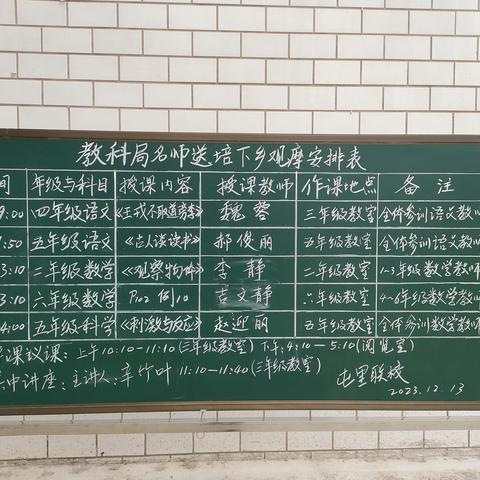 教科局名师送培下乡观摩安排表
间 年级与科目 授课内容 授课教师 作课地点 备注
9:00 四年级语文 《王戎不取道旁李》 魏蓉 三年级教室 全体参训语文教师
:50 五年级语文 《古人谈读书》 郝俊丽 五年级教室 全体参训语文教师
3:10 二年级数学 《观察物体》 李静 二年级教室 1-3年级数学教师
3:10 六年级数学 P102 例10 吉文静 六年级教室 4-6年级数学教师
4:00 五年级科学 《刺激与反应》 赵迎丽 五年级教室 全体参训数学教师
课议课：上午10:10-11:10(三年级教室) 下午：4:10-5:10(阅览室)
中讲座：主讲人：辛竹叶 11:10-11:40(三年级教室) 屯里联校
2023.12.13